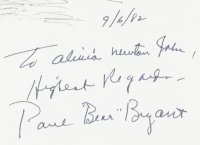 9/6/82
To Olivia Newton John,
Highest Regards -
Paul "Bear" Bryant